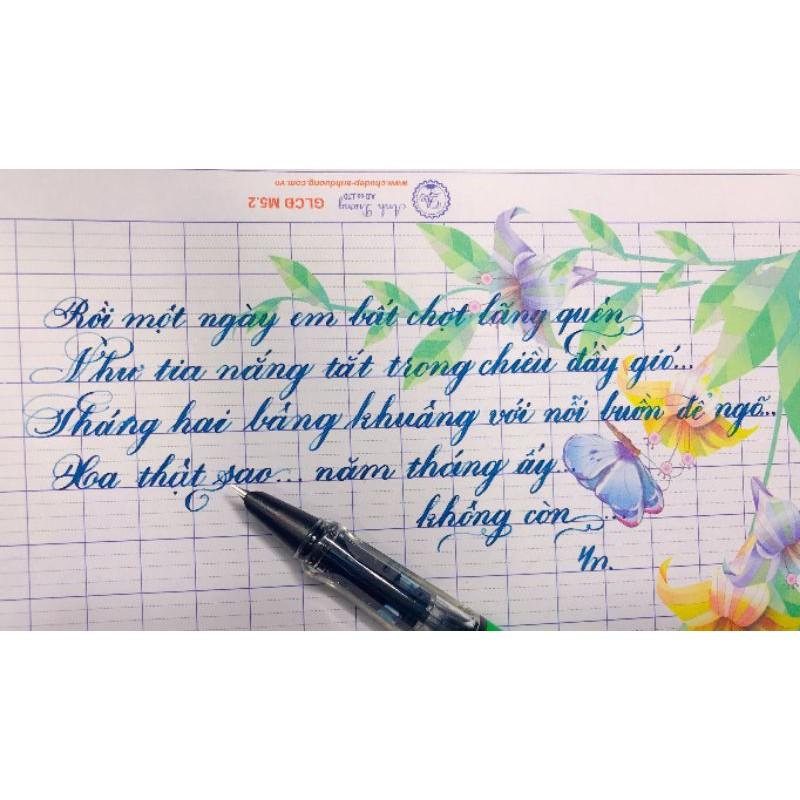 www.chudep-anhduong.com.vn
GLCĐ M5.2
Ánh Dương
Rồi một ngày em bất chợt lãng quên
Như tia nắng tắt trong chiều đầy gió...
Tháng hai bâng khuâng với nỗi buồn để ngõ...
Xa thật sao... năm tháng ấy
không còn...